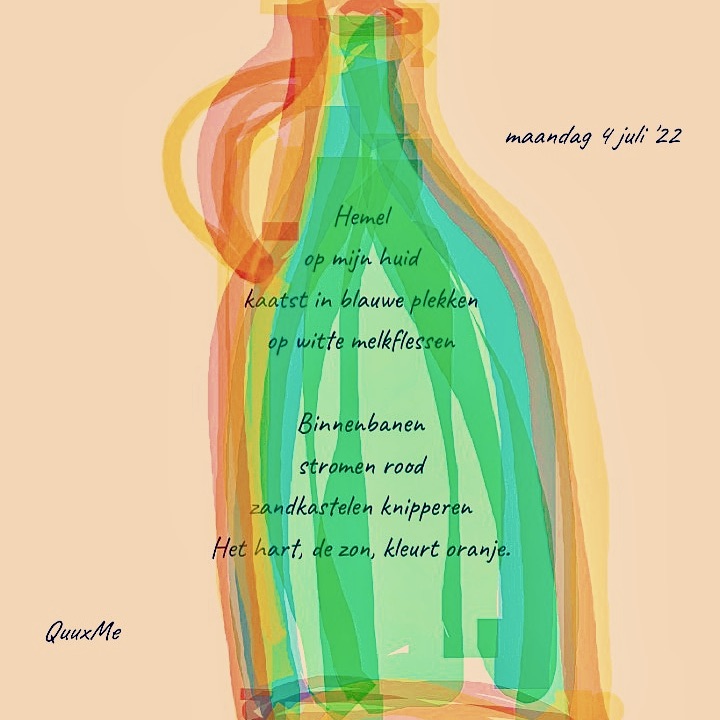 maandag 4 juli '22
Hemel
op mijn huid
kaatst in blauwe plekken
op witte melkflessen
Binnenbanen
stromen rood
zandkastelen knipperen
Het hart, de zon, kleurt oranje.
QuuxMe